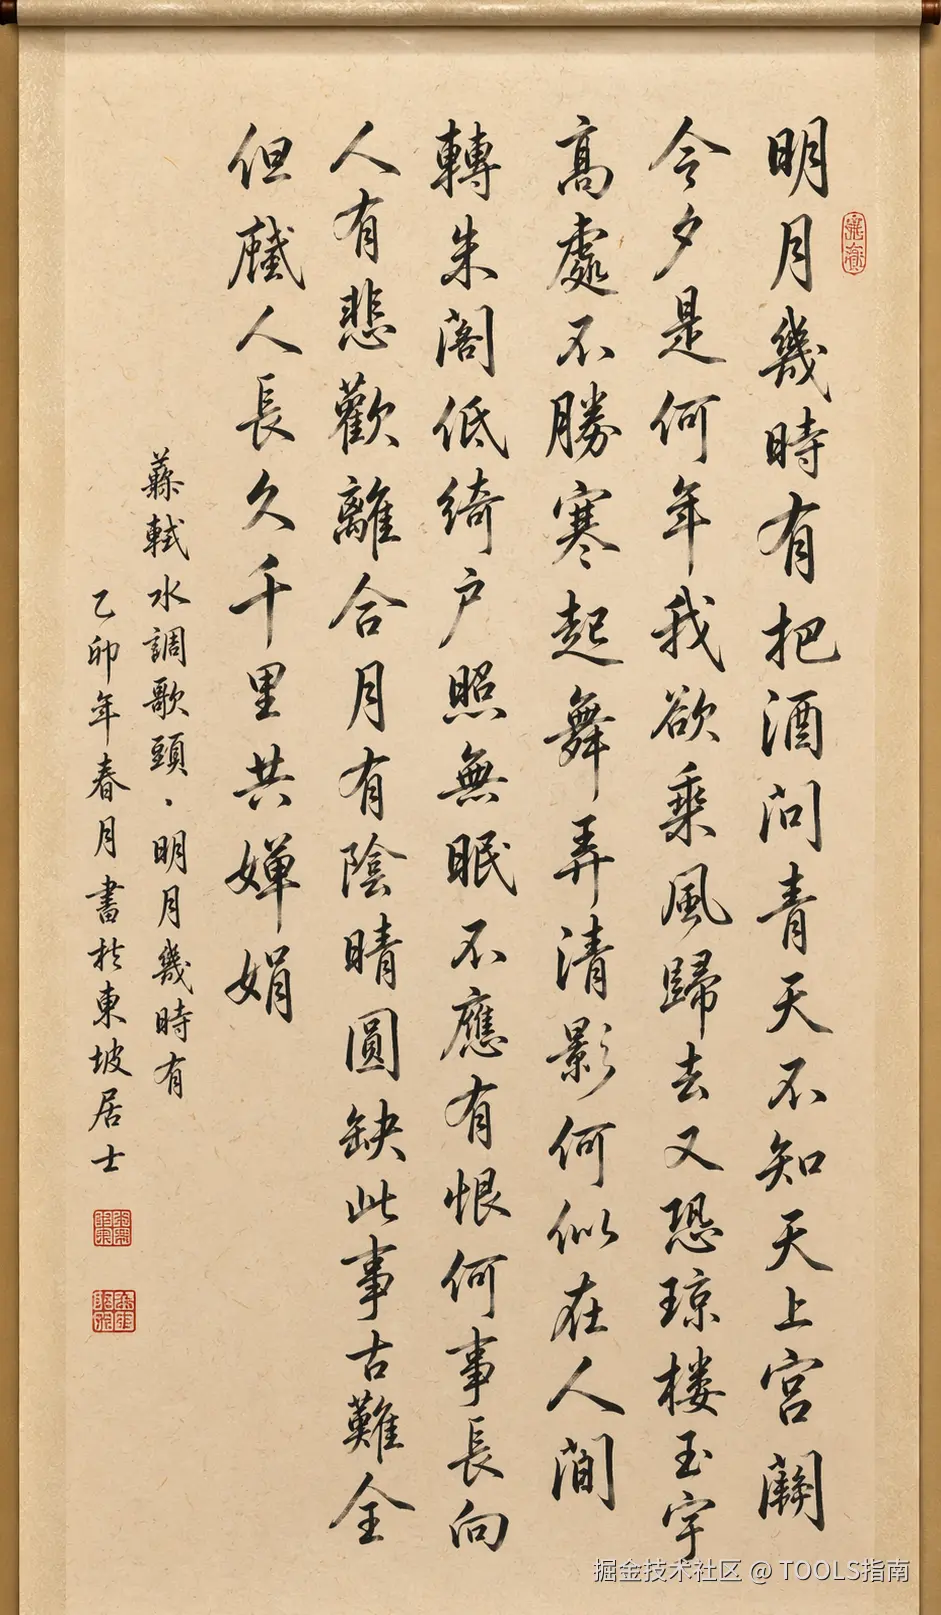 明月幾時有把酒問青天不知天上宮闕
今夕是何年我欲乘風歸去又恐琼楼玉宇
高處不勝寒起舞弄清影何似在人間
轉朱阁低绮户照無眠不應有恨何事長向
人有悲歡離合月有陰晴圓缺此事古難全
但人長久千里共婵娟
蘇軾水調歌頭·明月幾時有
乙卯年春月書於東坡居士
掘金技术社区 @ TOOLS指南